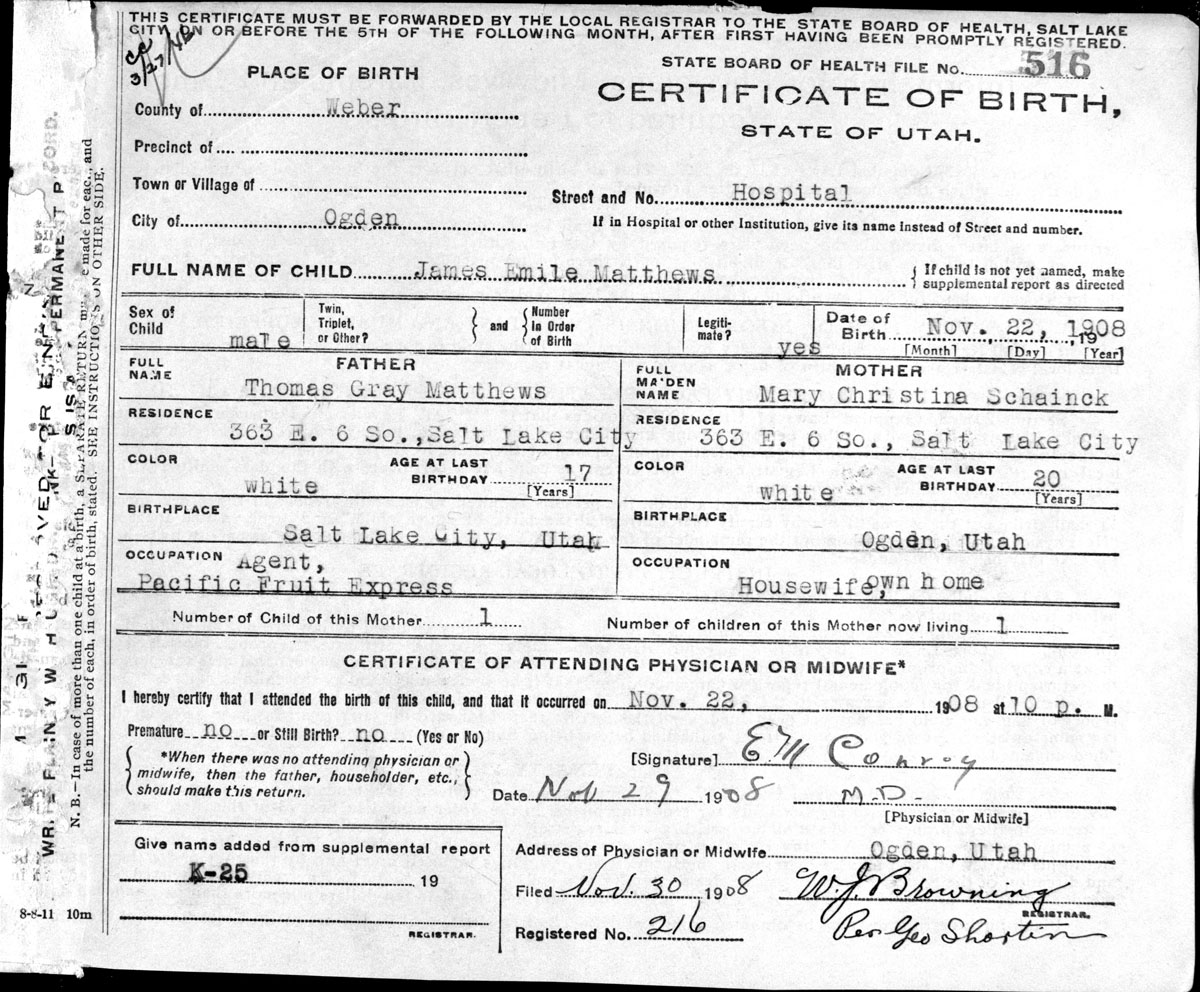 THIS CERTIFICATE MUST BE FORWARDED BY THE LOCAL REGISTRAR TO THE STATE BOARD OF HEALTH, SALT LAKE
CITY, ON OR BEFORE THE 5TH OF THE FOLLOWING MONTH, AFTER FIRST HAVING BEEN PROMPTLY REGISTERED.
3/27
STATE BOARD OF HEALTH FILE No. 516
PLACE OF BIRTH
CERTIFICATE OF BIRTH,
STATE OF UTAH.
County of Weber
Precinct of
Town or Village of
Street and No. Hospital
City of Ogden
If in Hospital or other Institution, give its name instead of Street and number.
FULL NAME OF CHILD James Emile Matthews
If child is not yet named, make
supplemental report as directed
Sex of Child male
Twin, Triplet, or Other?
and
Number in Order of Birth
Legiti-mate? yes
Date of Birth Nov. 22, 1908
, 19
[Month] [Day] [Year]
FATHER
FULL NAME
Thomas Gray Matthews
RESIDENCE
363 E. 6 So., Salt Lake City
COLOR white
AGE AT LAST BIRTHDAY 17
[Years]
BIRTHPLACE
Salt Lake City, Utah
OCCUPATION Agent,
Pacific Fruit Express
MOTHER
FULL MAIDEN NAME
Mary Christina Schainck
RESIDENCE
363 E. 6 So., Salt Lake City
COLOR white
AGE AT LAST BIRTHDAY 20
[Years]
BIRTHPLACE
Ogden, Utah
OCCUPATION
Housewife, own home
Number of Child of this Mother 1
Number of children of this Mother now living 1
CERTIFICATE OF ATTENDING PHYSICIAN OR MIDWIFE*
I hereby certify that I attended the birth of this child, and that it occurred on Nov. 22, 1908 at 10 p. M.
Premature no or Still Birth? no (Yes or No)
*When there was no attending physician or
midwife, then the father, householder, etc.,
should make this return.
[Signature] E M Conroy
Date Nov 29 1908 M.D.
[Physician or Midwife]
Give name added from supplemental report
K-25 19
REGISTRAR.
Address of Physician or Midwife Ogden, Utah
Filed Nov. 30 1908 W. J. Browning
REGISTRAR.
Registered No. 216 Per Geo Shortin
8-8-11 10m
N. B.—In case of more than one child at a birth, a SEPARATE RETURN made for eac , and
the number of each, in order of birth, stated. SEE INSTRUCTIONS ON OTHER SIDE.